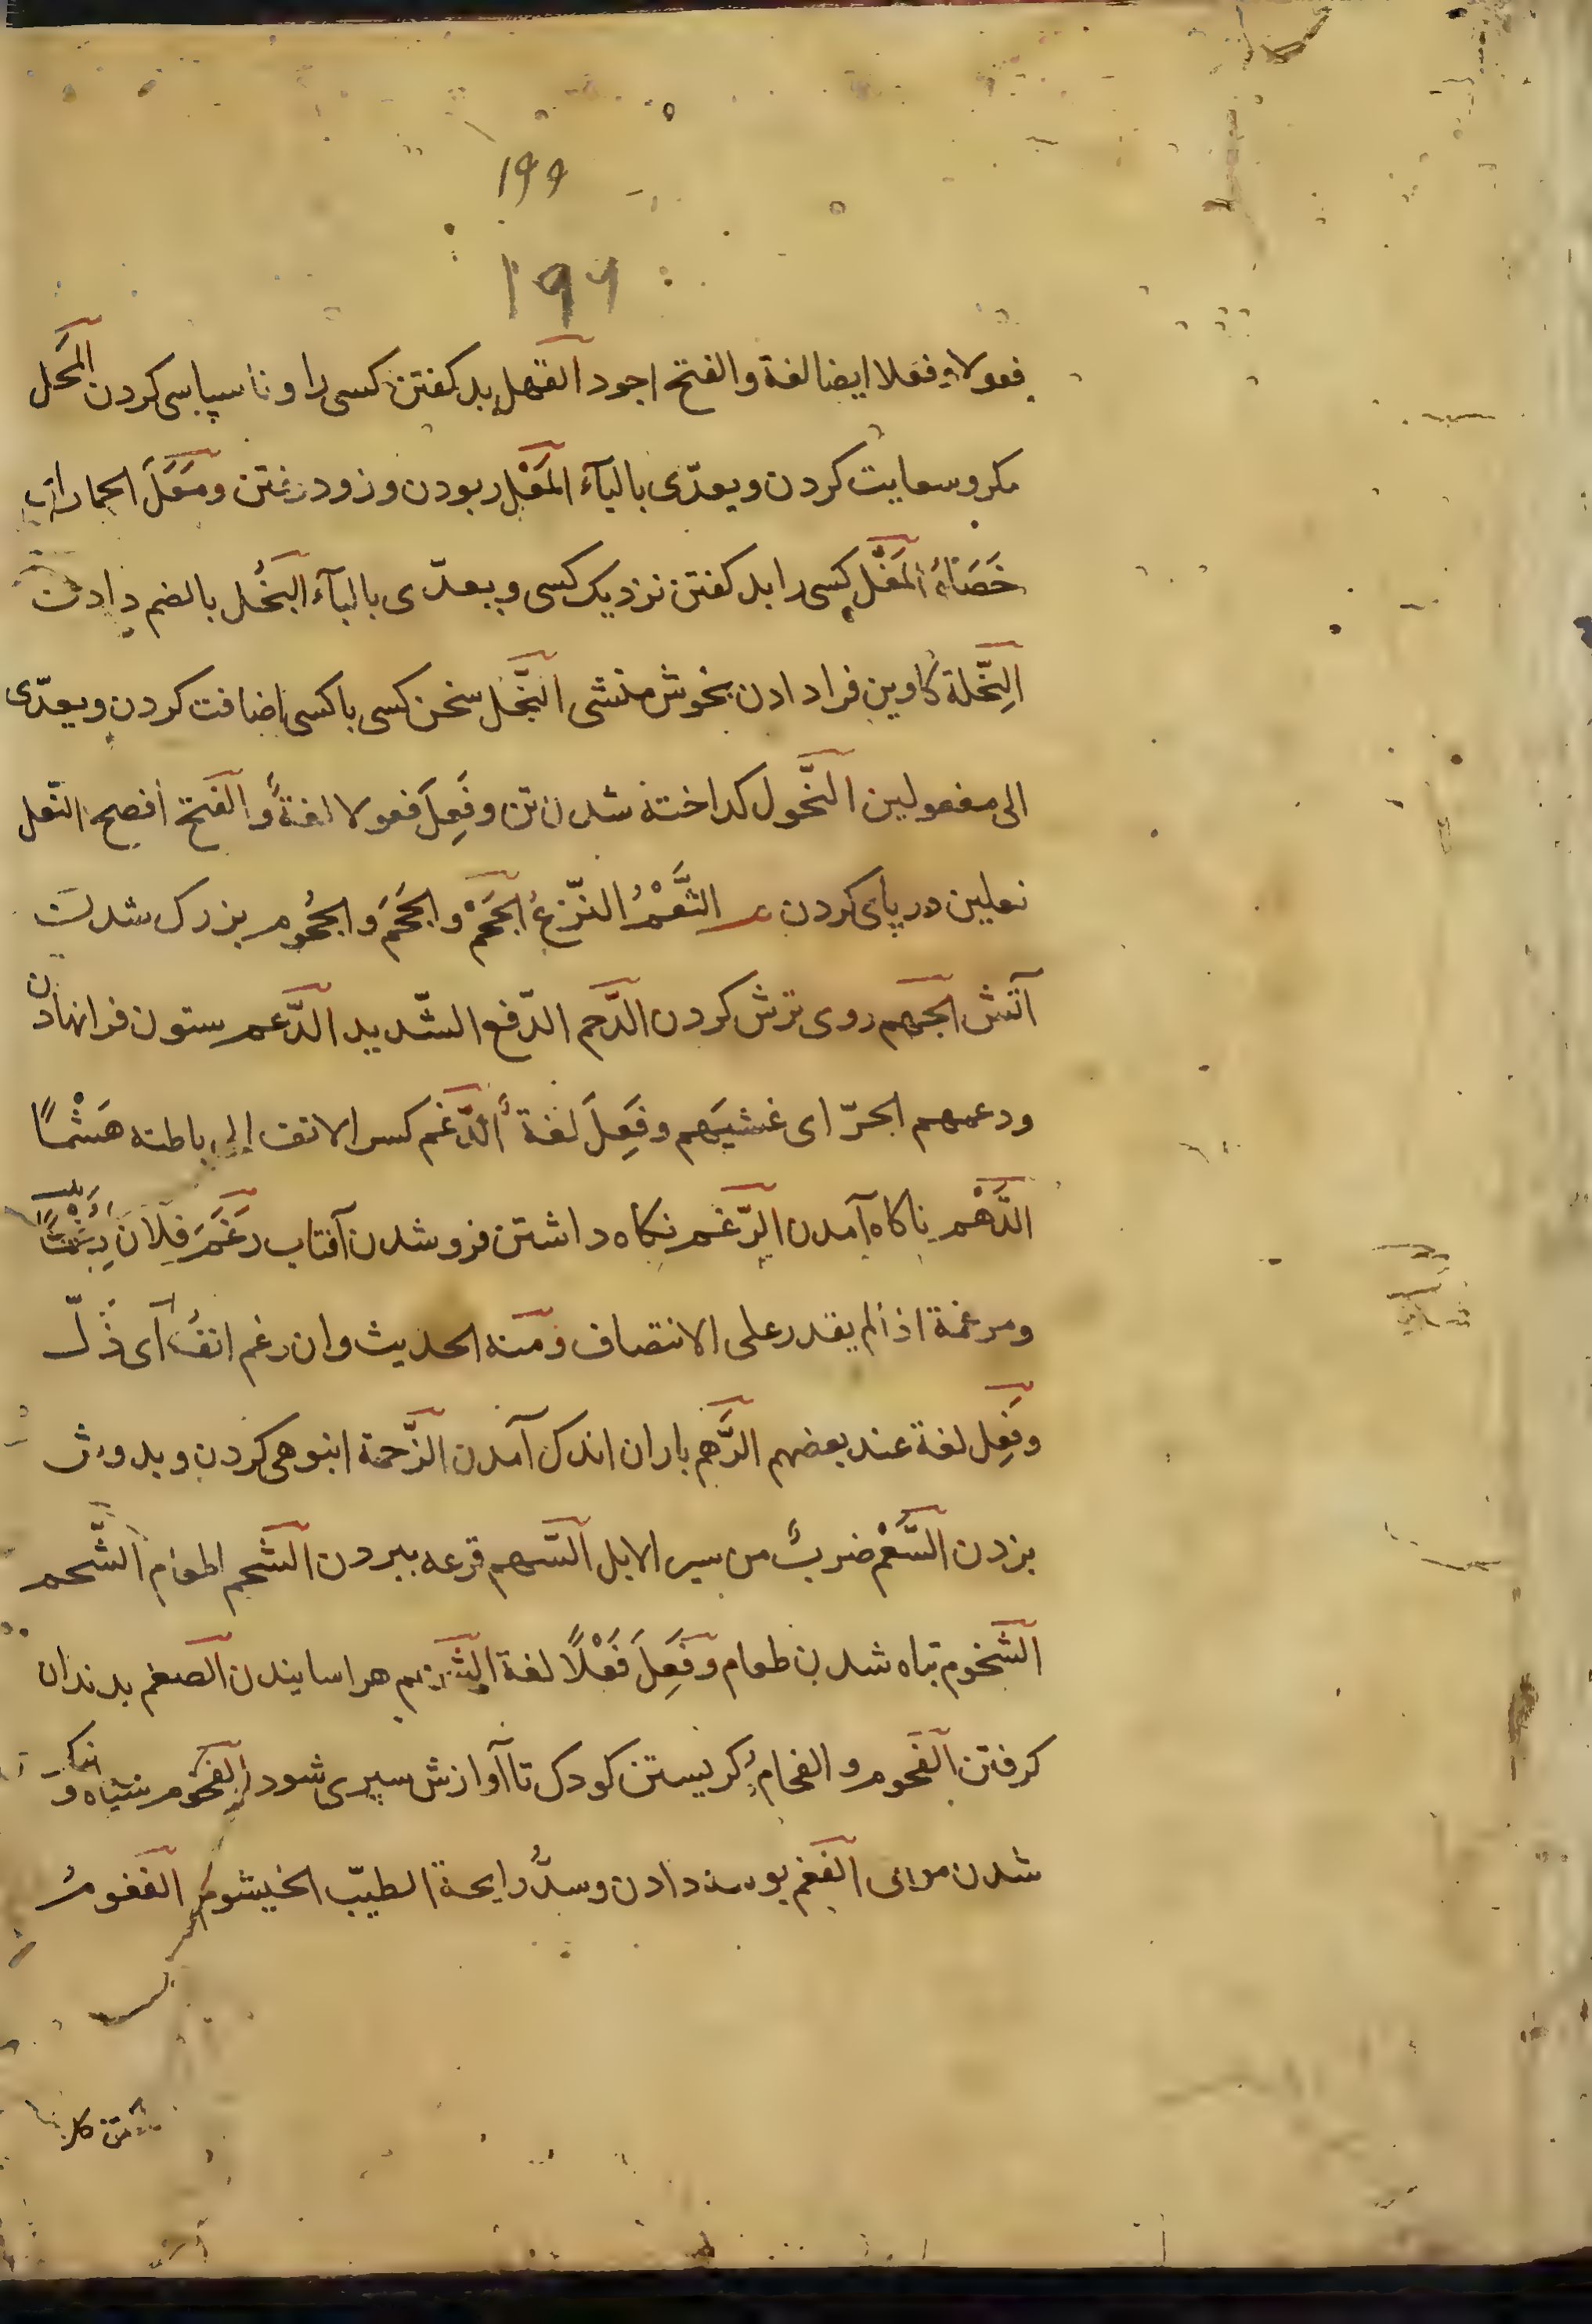 199
199
فعولا وفعلا ایضا لغة والفتح اجود القهل بد کفتن کسی را و ناسپاسی کردن المحل
مکر وسعایت کردن ویعدّی بالبآء المَعْل ربودن وزود رفتن ومَعَلَ الحمار ای
خَصَاهُ المَغْل کسی را بد کفتن نزدیک کسی ویعدّی بالبآء النُحْل بالضم دادن
النِّحْلة کاوین فرادادن بخوش منشی النَّحْل سخن کسی با کسی اضافت کردن ویعدّی
الی مفعولین النُّحول کداخته شدن تن وفَعِلَ فعولا لغةً والفتح أفصح النّعل
نعلین در پای کردن م الثَّعْمُ النّزعُ الجَحْمْ والجَحَم والجُحُوم بزرک شدن
آتش الجهم روی ترش کردن الدَّحم الدّفع الشّدید الدَّعم ستون فرانهادن
ودعمهم الحرّ ای غشیَهم وفَعِلَ لغة الدَّغم کسر الانف الی باطنه هَشْمًا
الدَّهْم ناکاه آمدن الرَّغم نکاه داشتن فرو شدن آفتاب رَغَمَ فلان رغمًا
ومرغمة اذا لم یقدر علی الانتصاف ومنه الحدیث وان رغم انفُه ای ذُلّ
وفَعِل لغة عند بعضهم الرَّهم باران اندک آمدن الزَّحمة انبوهی کردن وبدوش
بزدن السَّعْم ضربٌ من سیر الابل السَّهم قرعه ببردن الشَّحم اطعام الشَّحم
الشَّخوم تباه شدن طعام وفَعِلَ فَعْلًا لغة الشَّهم هراسانیدن الضغم بدندان
کرفتن الفحوم والفحام کریستن کودک تا آوازش سپری شود الفحوم سیاه و نیکو
شدن موی الفغم بوسه دادن وسدُّ رایحة الطیّب الخیشوم الفغوم